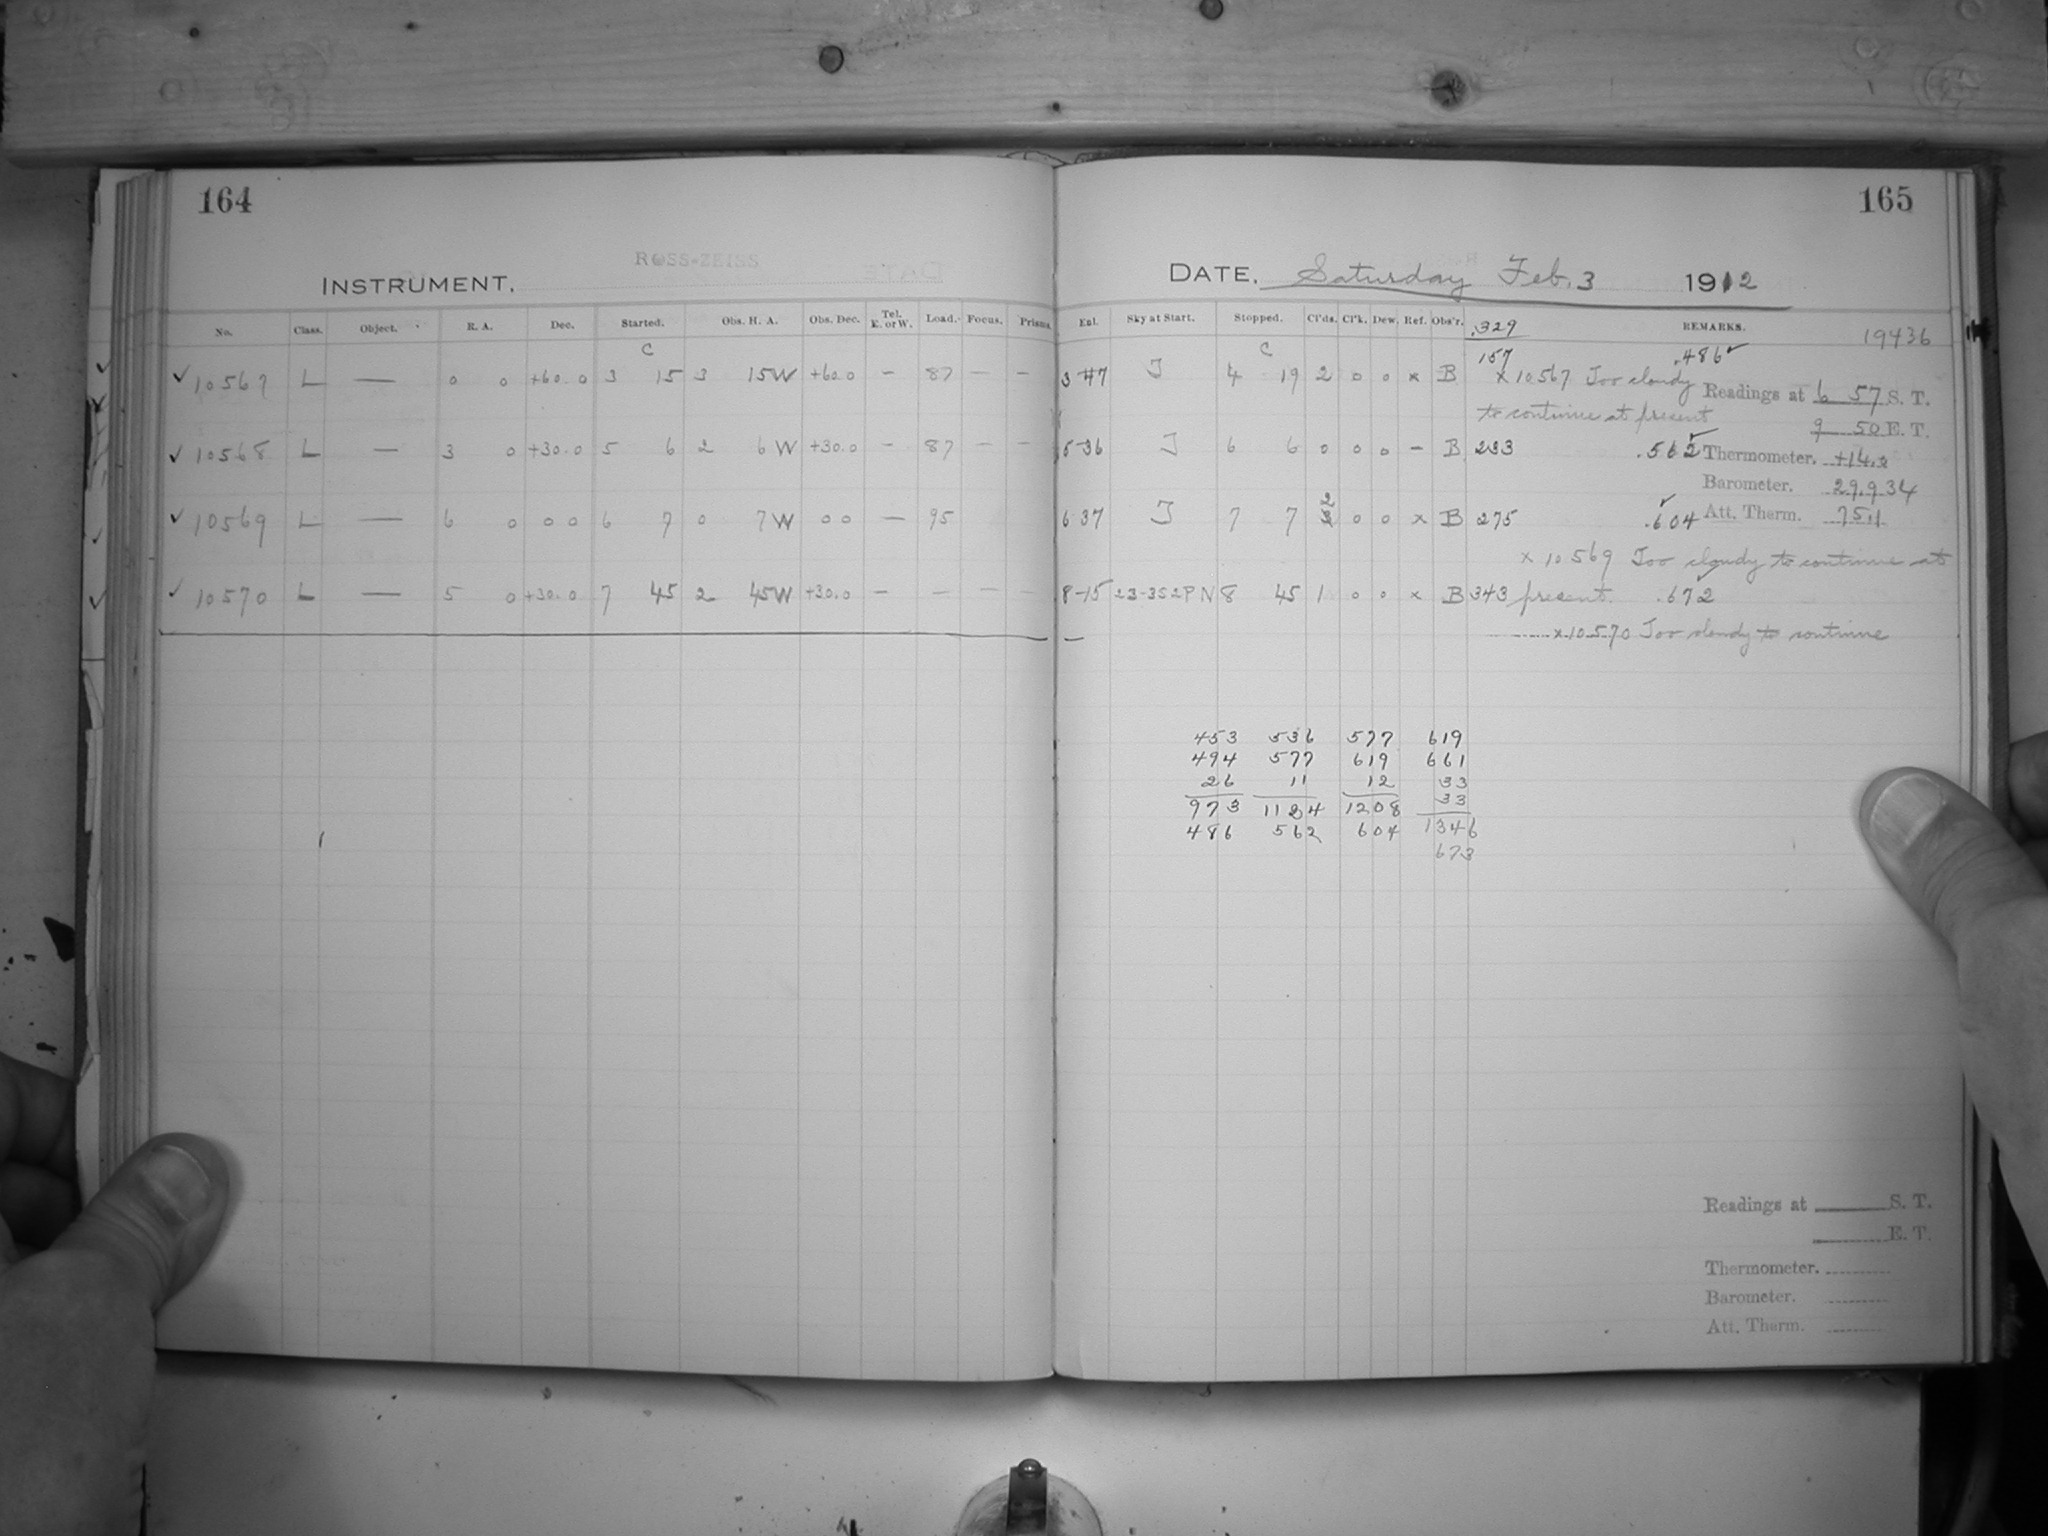 164
ROSS-ZEISS
INSTRUMENT.
No. Class. Object. R. A. Dec. Started. Obs. H. A. Obs. Dec. Tel. E. or W. Load. Focus. Prisms.
C
✓ 10567 L — 0 0 +60.0 3 15 3 15W +60.0 — 87 — —
✓ 10568 L — 3 0 +30.0 5 6 2 6W +30.0 — 87 — —
✓ 10569 L — 6 0 0 0 6 7 0 7W 0 0 — 95
✓ 10570 L — 5 0 +30.0 7 45 2 45W +30.0 — — — —
165
DATE. Saturday Feb. 3 1912
Exl. Sky at Start. Stopped. Cl'ds. Cl'k. Dew. Ref. Obs'r. .329 REMARKS. 19436
C
3 47 4 19 2 0 0 x B 157 .486 ✓
x 10567 Too cloudy
to continue at present
Readings at 6 57 S. T.
9 50 E. T.
5-36 6 6 0 0 0 — B 233 .562 ✓
Thermometer.
Barometer. 29.934
Att. Therm. 75.1
6 37 7 7 0 0 x B 275 .604 ✓
x 10569 Too cloudy to continue at
8-15 8 45 1 0 0 x B 343 present. .672 ✓
x 10570 Too cloudy to continue
453 536 577 619
494 577 619 661
26 11 12 33
33
973 1124 1208 1346
486 562 604 673
Readings at S. T.
E. T.
Thermometer.
Barometer.
Att. Therm.